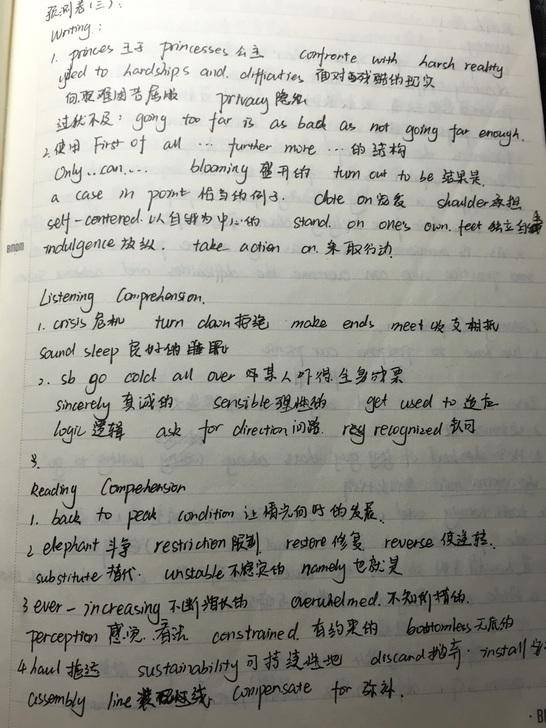 预测卷(三):
Writing:
1. princes 王子 princesses 公主 confronte with harsh reality
yied to hardships and. difficuties 面对西残酷的现实
向艰难困苦屈服 privacy 隐私
过犹不及: going too far is as back as not going far enough.
2.使用 First of all … further more … 的结构
Only..can.... blooming 盛开的 turn out to be 结果是.
a case in point 恰当的例子. dote on 宠爱 shoulder 承担
self-centered. 以自我为中心的 stand. on one's own. feet 独立自主
indulgence 放纵. take action on. 采取行动.
Listening Comprehension.
1. crisis 危机 turn down 拒绝 make ends meet 收支相抵
sound sleep 良好的睡眠
2. sb go cold all over 吓某人吓得全身发栗
sincerely 真诚的 sensible 理性的 get used to 适应
logic 逻辑 ask for direction 问路. recognized 认可
3.
Reading Comprehension
1. back to peak condition 让情况向好的发展.
2 elephant 斗争 restriction 限制 restore 修复 reverse 使逆转.
substitute 替代. unstable 不稳定的 namely 也就是
3 ever-increasing 不断增长的 overwhelmed. 不知所措的.
perception 感觉.看法 constrained. 有约束的 bottomless 无底的
4 haul 拖运 sustainability 可持续性地 discand 抛弃. install
assembly line 装配线 compensate for 弥补.